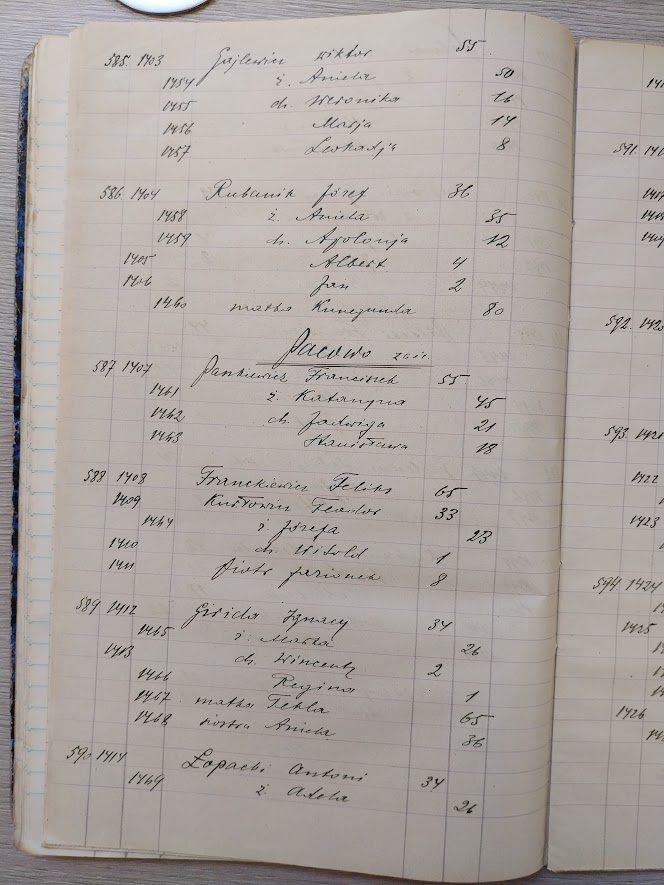 585. 1403 Gajlewin Wiktor 55
1454 ż. Aniela 50
1455 ch. Weronika 16
1456 Marja 14
1457 Leokadja 8
586 1404 Rubanik Józef 36
1458 ż. Aniela 35
1459 ch. Apolonja 12
1405 Albert 4
1406 Jan 2
1460 matka Kunegunda 80
Jacowo zaść.
587 1407 Jankiewicz Franciszek 55
1461 ż. Katarzyna 45
1462 ch. Jadwiga 21
1463 Stanisława 18
588 1408 Franckiewicz Feliks 65
1409 Kustowin Teodor 33
1464 ż Józefa 23
1410 ch. Witold 1
1411 Piotr 8
589 1412 Ignacy 34
1465 ż. Marta 26
1413 ch. Wincenty 2
1466 Regina 1
1467 matka Tekla 65
1468 siostra Aniela 36
590 1414 Łopacki Antoni 34
1469 ż. Adela 26
591.
592.
593.
1422
1423
594. 1424
1425
1426